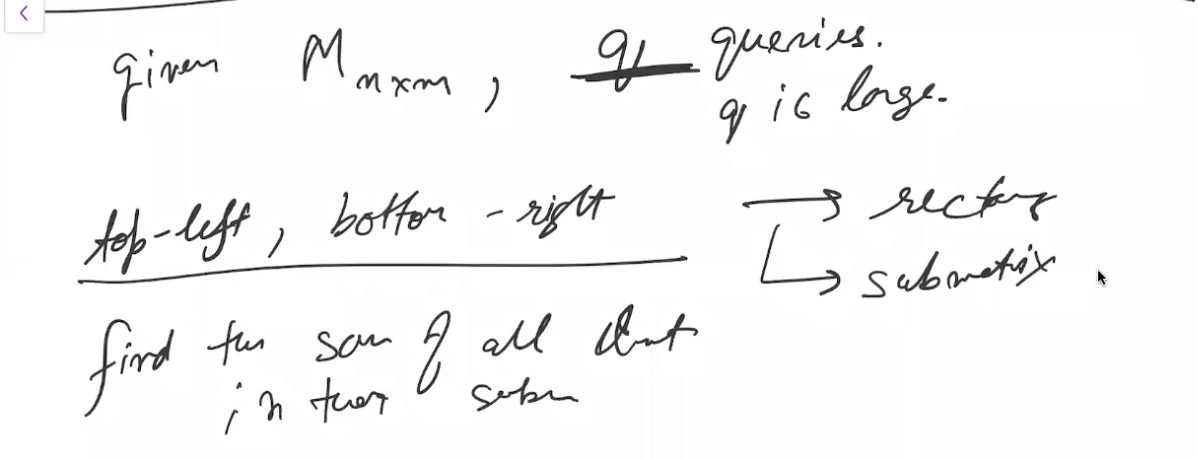 given M n x m , q queries.
q is large.
top-left, bottom-right → rectang
↳ submatrix
find the sum of all
in that subm